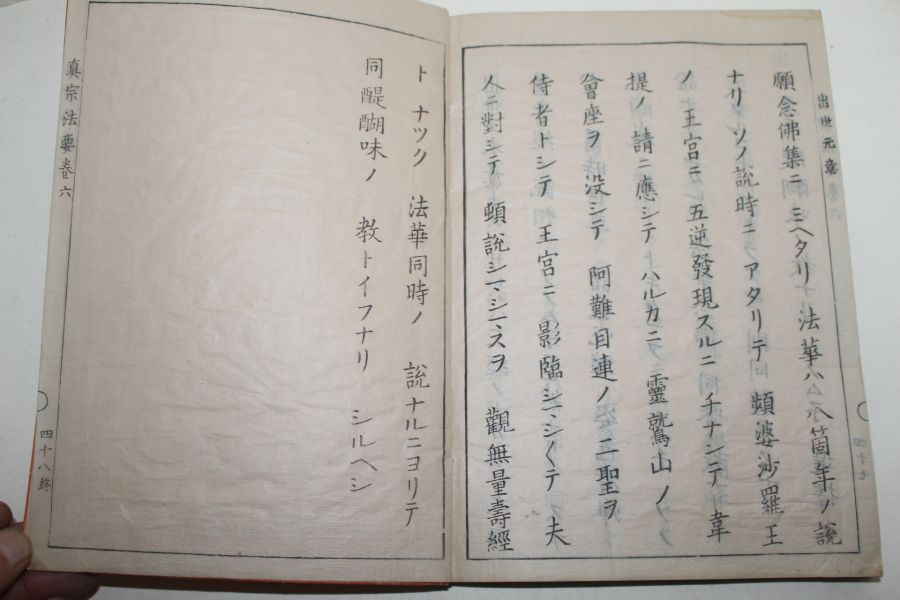 出世元意
願念佛集ニ ミヘタリ 法華ハ 八箇年ノ 說
ナリ ソノ 說時ニ アタリテ 頻婆沙羅王
ノ 王宮ニ 五逆發現スルニ チナンテ 韋
提ノ 請ニ 應シテ ハルカニ 靈鷲山ノ
會座ヲ 没シテ 阿難目連ノ 二聖ヲ
侍者トシテ 王宮ニ 影臨シマシ〱テ 夫
人ニ 對シテ 頓說シマシマスヲ 觀無量壽經
四十七
ト ナツク 法華同時ノ 說ナルニヨリテ
同醍醐味ノ 教トイフナリ シルヘシ
真宗法要 卷六
四十八終